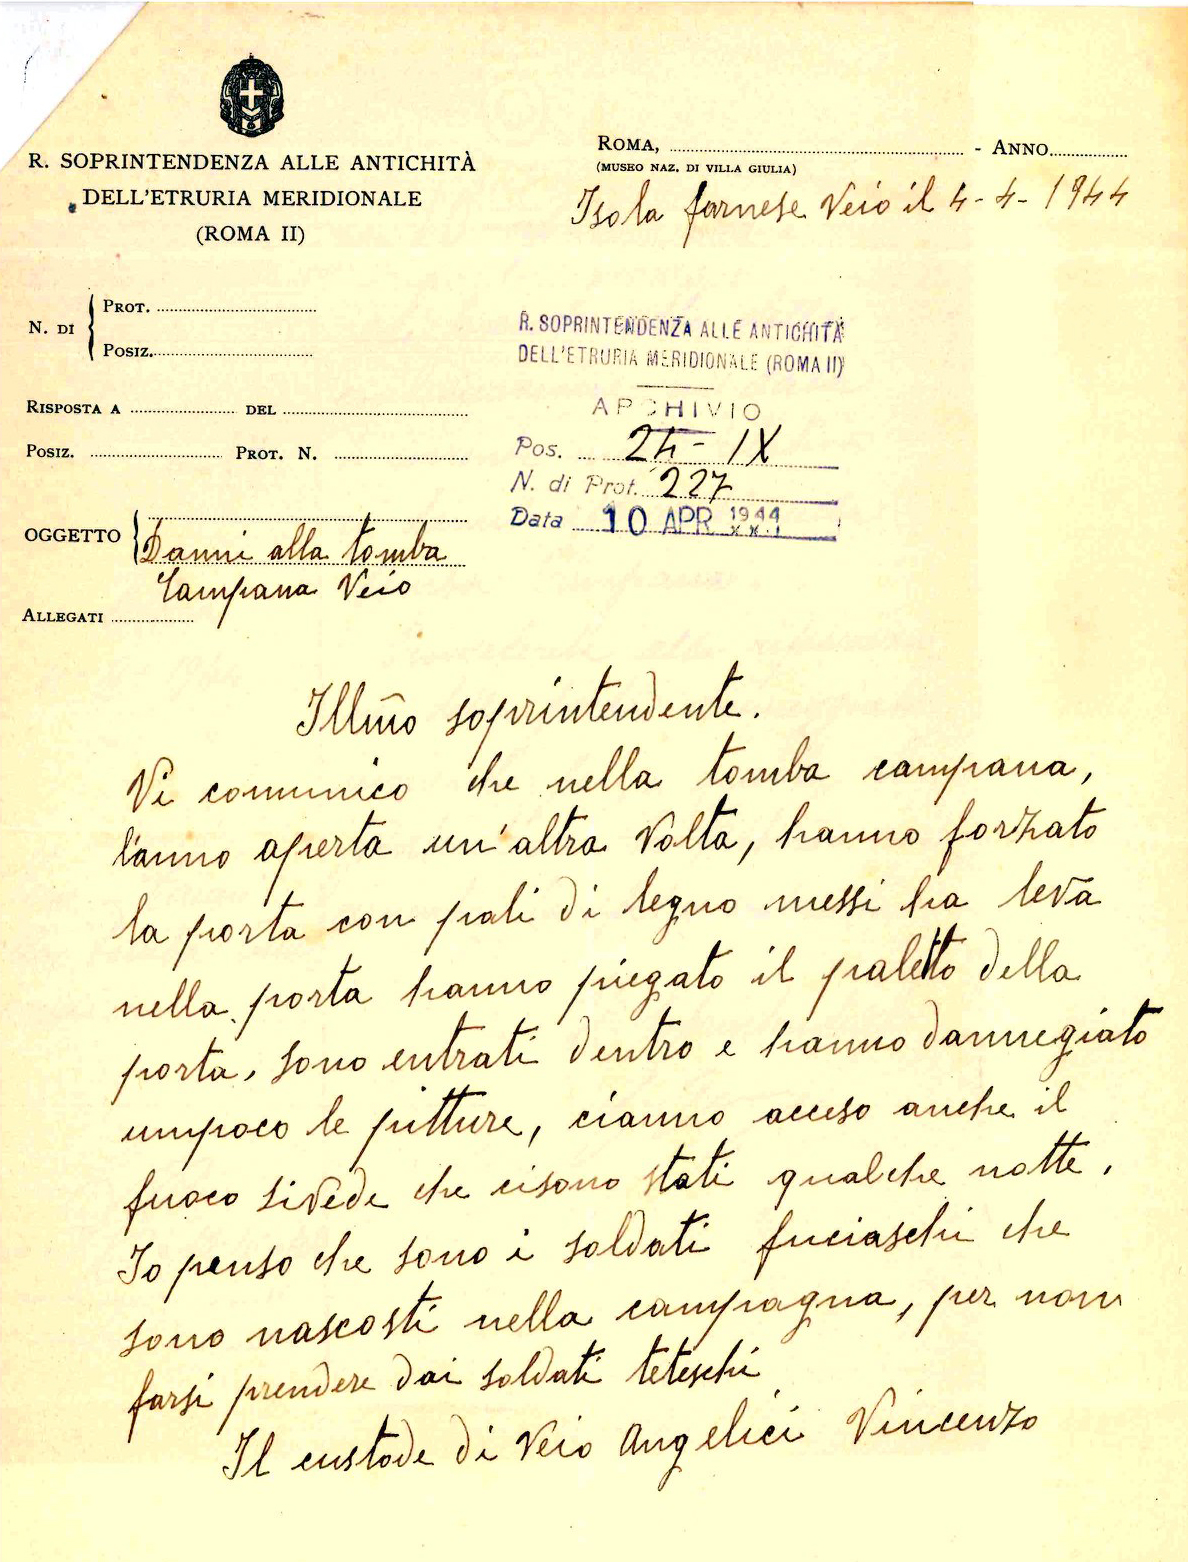 R. SOPRINTENDENZA ALLE ANTICHITÀ
DELL'ETRURIA MERIDIONALE
(ROMA II)
ROMA, - ANNO
(MUSEO NAZ. DI VILLA GIULIA)
Isola farnese Veio il 4-4-1944
N. DI
PROT.
POSIZ.
RISPOSTA A DEL
POSIZ. PROT. N.
R. SOPRINTENDENZA ALLE ANTICHITÀ
DELL'ETRURIA MERIDIONALE (ROMA II)
ARCHIVIO
Pos. 24 - IX
N. di Prot. 227
Data 10 APR 1944
OGGETTO
Danni alla tomba
Campana Veio
ALLEGATI
Illm̃o soprintendente.
Vi comunico che nella tomba campana,
l'anno aperta un'altra Volta, hanno forzato
la porta con pali di legno messi ha leva
nella porta hanno piegato il paletto della
porta, sono entrati dentro e hanno dannegiato
umpoco le pitture, cianno acceso anche il
fuoco sivede che cisono stati qualche notte.
Io penso che sono i soldati fuciaschi che
sono nascosti nella campagna, per non
farsi prendere dai soldati teteschi
Il custode di Veio Angelici Vincenzo